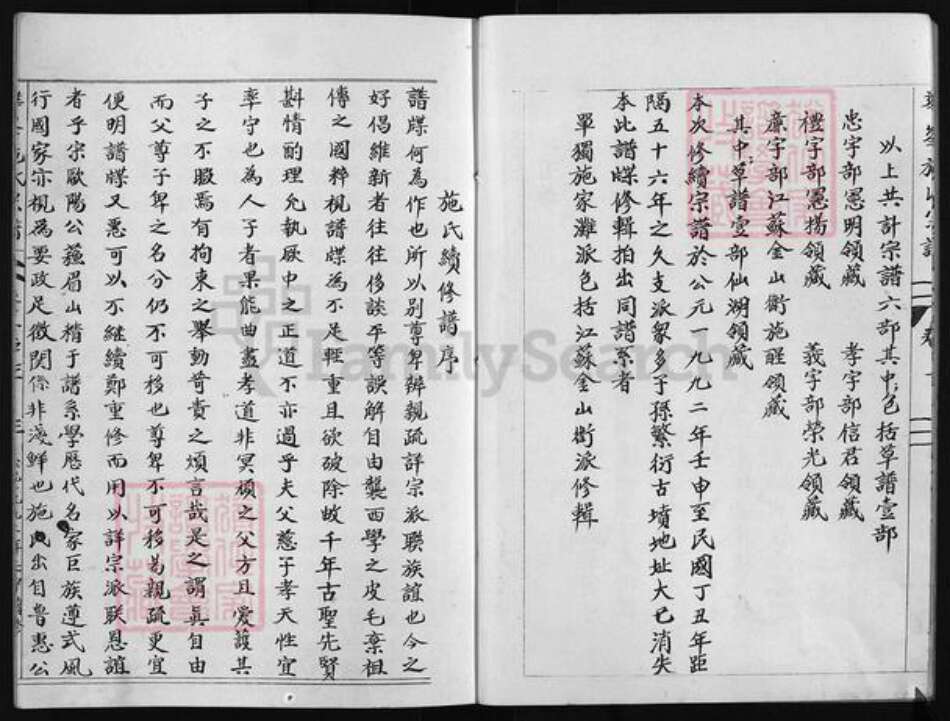 以上共計宗譜六部其中包括草譜壹部
忠字部憲明領藏 孝字部信君領藏
禮字部憲揚領藏 義字部榮光領藏
廉字部江蘇金山衛施醒領藏
其中草譜壹部仙湖領藏
本次修續宗譜於公元一九九二年壬申至民國丁丑年距
隔五十六年之久支派衆多子孫繁衍古墳地址大已消失
本此譜牒修輯拍出同譜系者
單獨施家灘派包括江蘇金山衛派修輯
施氏續修譜序
譜牒何為作也所以別尊卑辨親疏詳宗派聯族誼也今之
好倡維新者往往侈談平等誤解自由襲西學之皮毛棄祖
傳之國粹視譜牒為不足輕重且欲破除數千年古聖先賢
斟情酌理允執厥中之正道不亦過乎夫父慈子孝天性宜
率守也為人子者果能曲盡孝道非冥頑之父方且愛護其
子之不暇焉有拘束之舉動苛責之煩言哉是之謂真自由
而父尊子卑之名分仍不可移也尊卑不可移易親疏更宜
便明譜牒又惡可以不繼續鄭重修而用以詳宗派联恩誼
者乎宗歐陽公蘓眉山稽于譜系學歷代名家巨族遵式風
行國家亦視為要政足徵関係非淺鮮也施氏出自魯惠公
FamilySearch